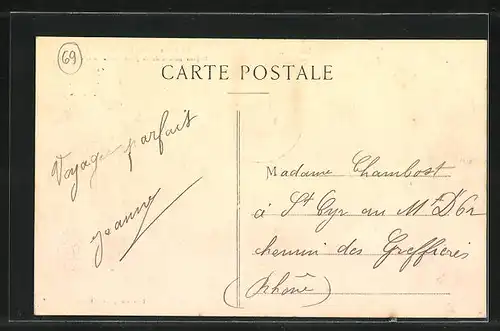 69
CARTE POSTALE
Voyage parfait
Jeanne
Madame Chambost
à St Cyr au Mt D'Or
chemin des Greffières
(Rhône)